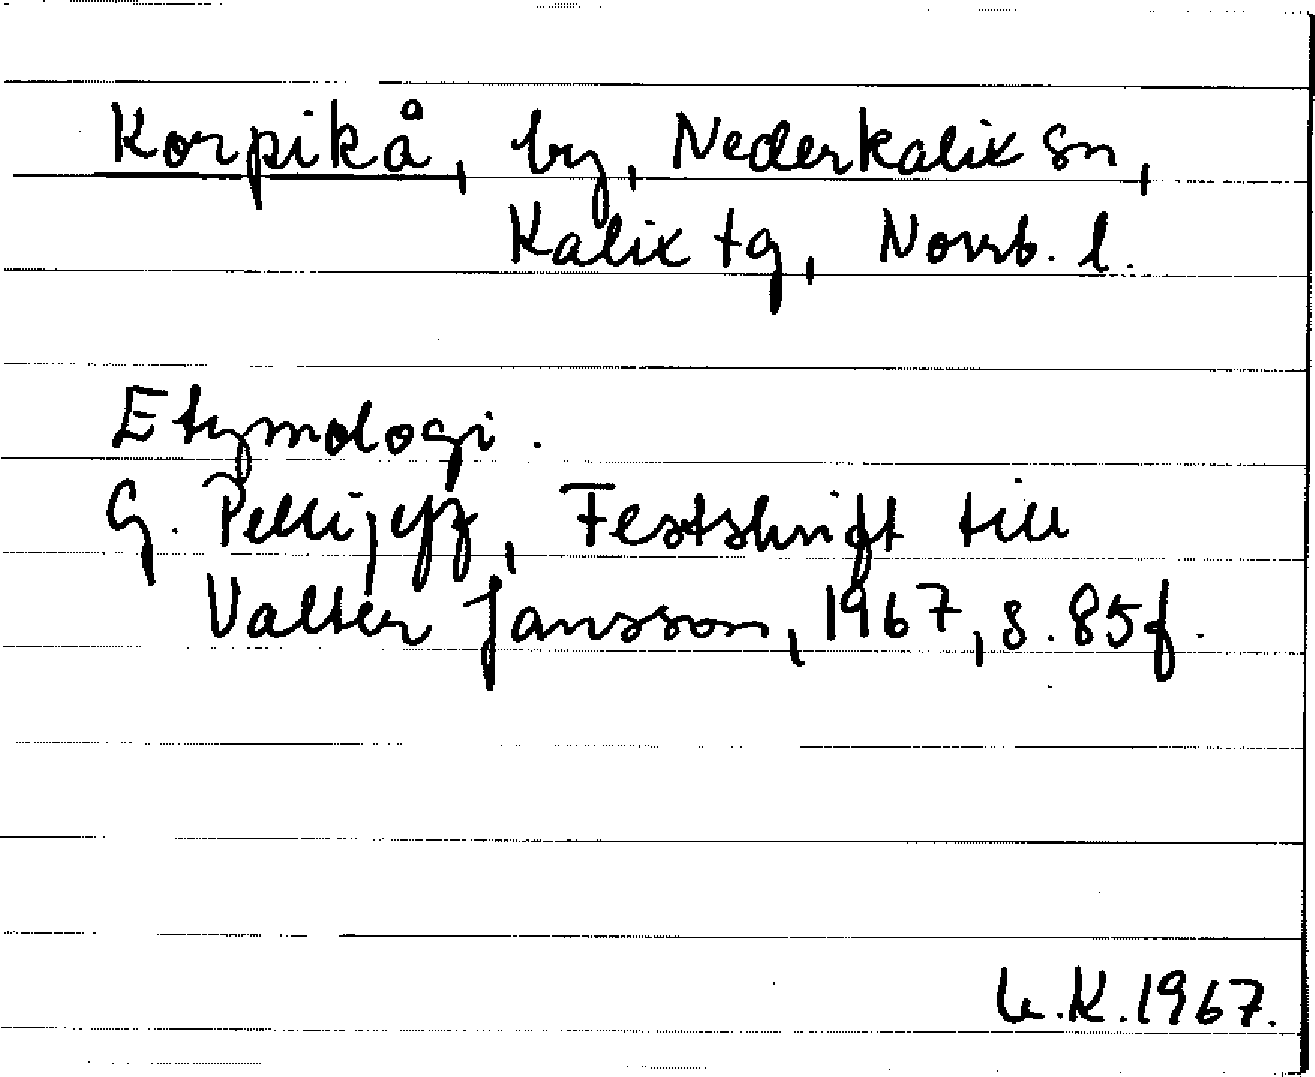 Korpikå, by, Nederkalix sn,
Kalix tg, Norrb. l.
Etymologi.
G. Pellijeff, Festskrift till
Valter Jansson, 1967, s. 85f.
K. 1967.